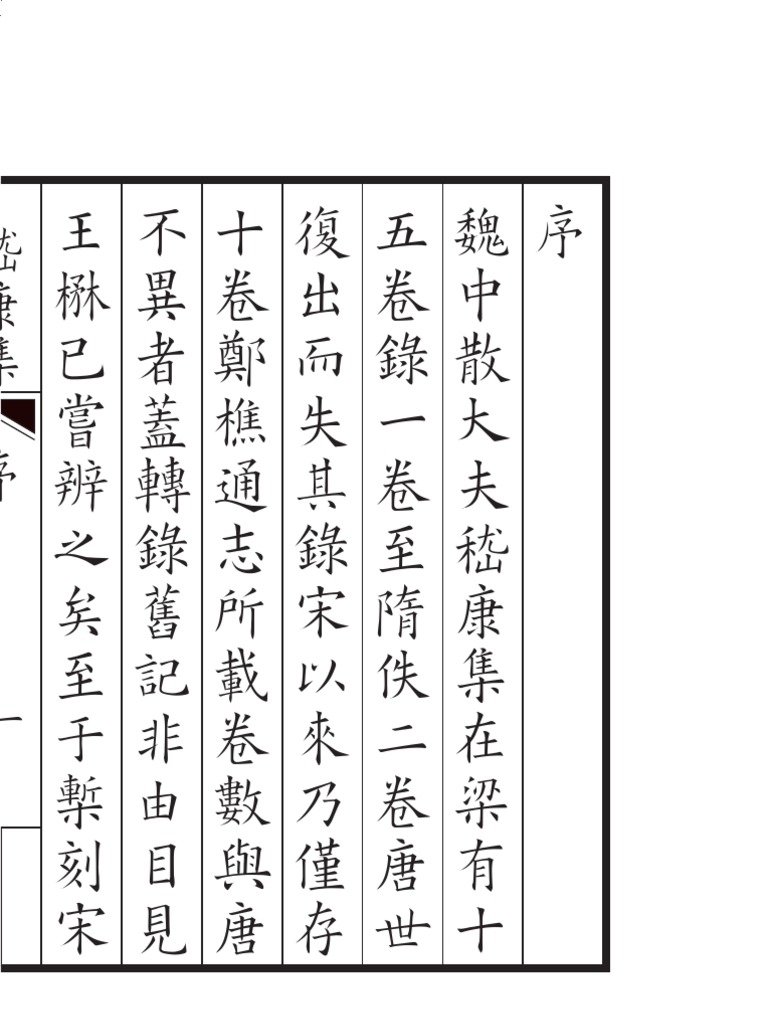 序
魏中散大夫嵇康集在梁有十
五卷錄一卷至隋佚二卷唐世
復出而失其錄宋以來乃僅存
十卷鄭樵通志所載卷數與唐
不異者蓋轉錄舊記非由目見
王楙已嘗辨之矣至于槧刻宋
嵇康集
序
一